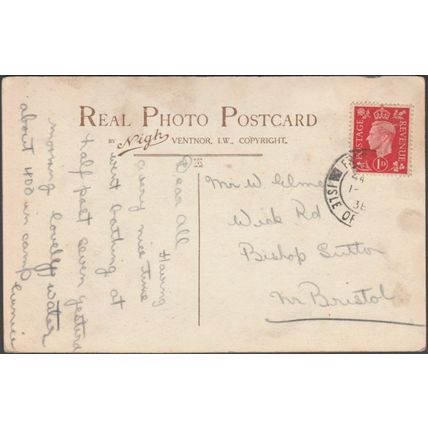 REAL PHOTO POSTCARD
BY Nigh VENTNOR, I.W., COPYRIGHT.
POSTAGE REVENUE
1D
ISLE OF
1-
38
Dear All
Having
a very nice time
went bathing at
Half past seven yesterd
morning lovely water
about 400 in camp
Mr W
Wick Rd
Bishop Sutton
Nr Bristol